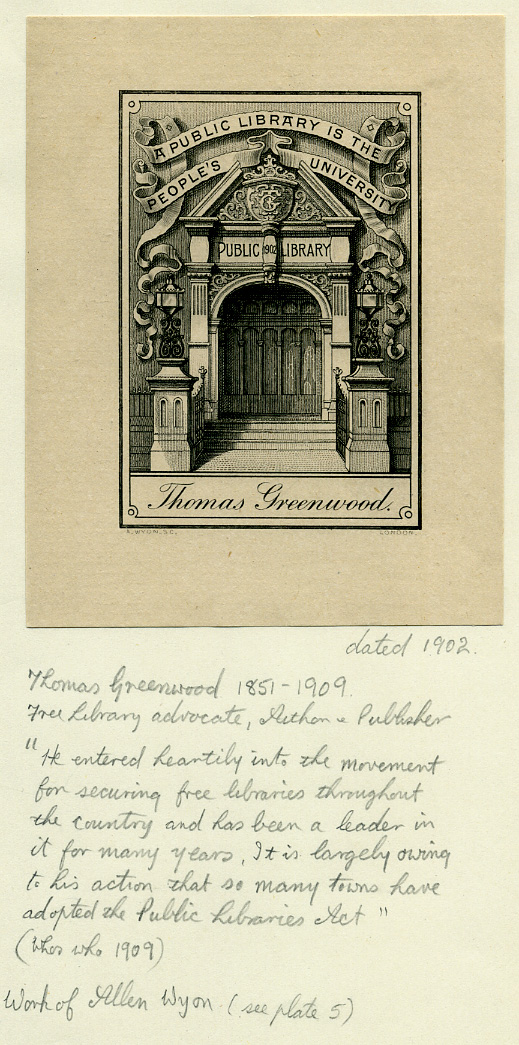 A PUBLIC LIBRARY IS THE
PEOPLE'S UNIVERSITY
TG
PUBLIC 1902 LIBRARY
Thomas Greenwood.
A. WYON. SC. LONDON.
dated 1902.
Thomas Greenwood 1851-1909.
Free Library advocate, Author & Publisher
"He entered heartily into the movement
for securing free libraries throughout
the country and has been a leader in
it for many years, It is largely owing
to his action that so many towns have
adopted the Public Libraries Act"
(Whos who 1909)
Work of Allen Wyon. (see plate 5)